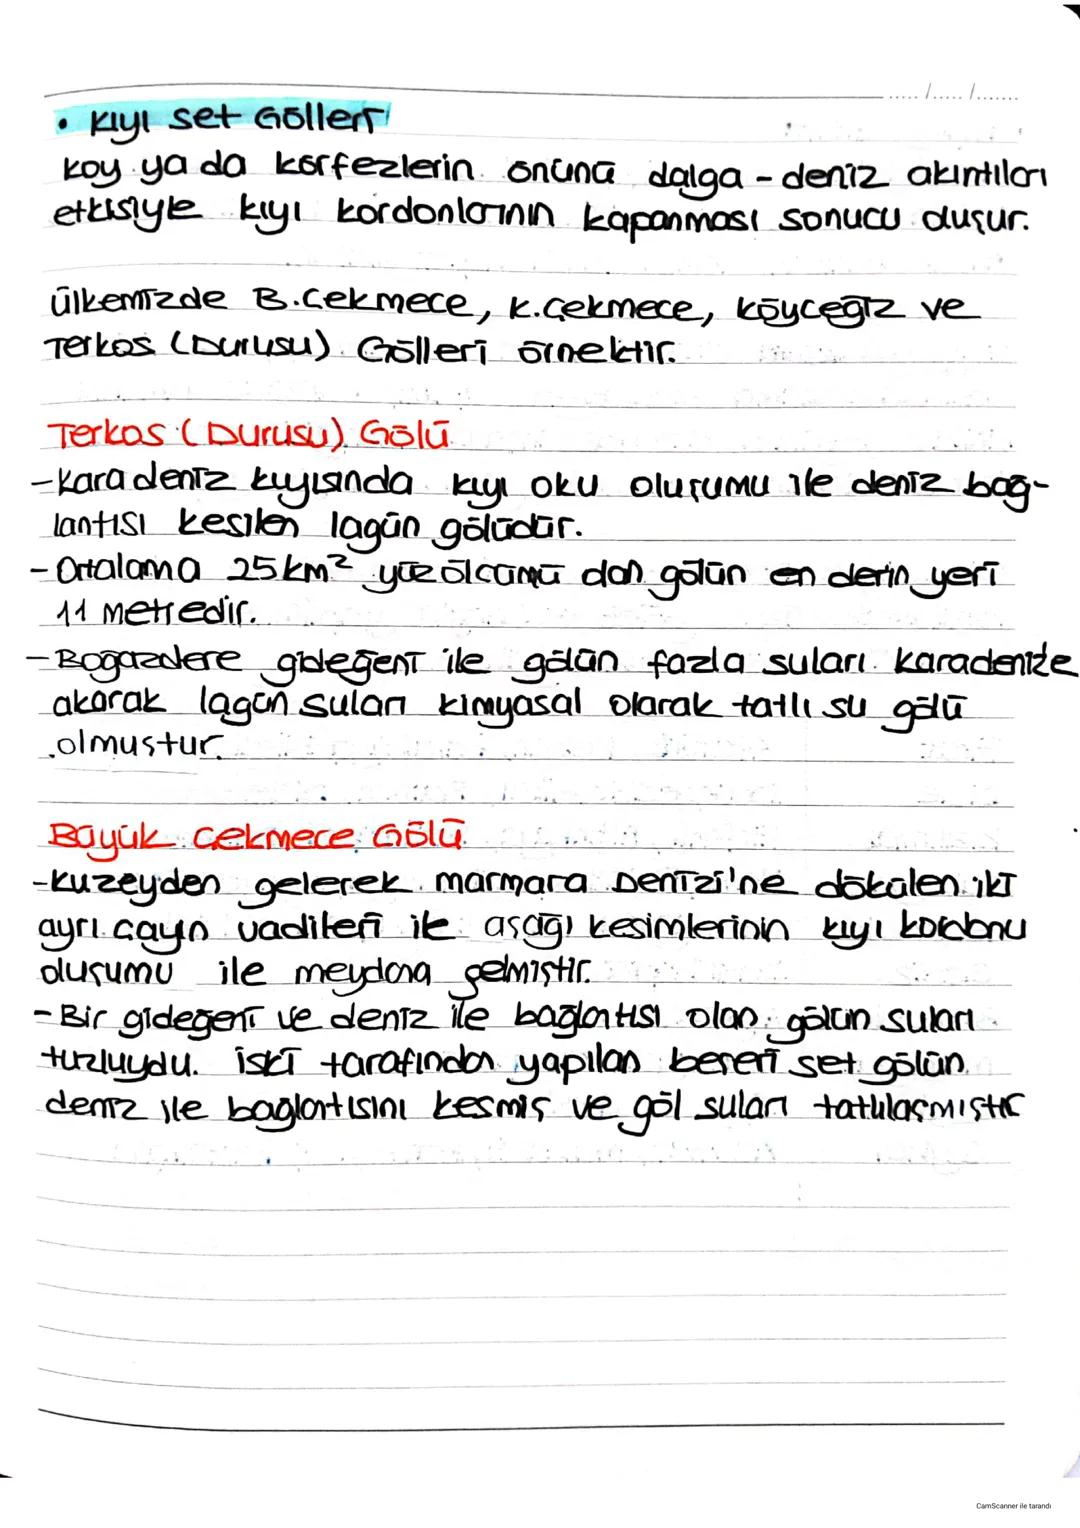 ...../...../.......
• Kıyı Set Gölleri
Koy ya da körfezlerin önünü dalga - deniz akıntıları
etkisiyle kıyı kordonlarının kapanması sonucu oluşur.
Ülkemizde B.Çekmece, K.Çekmece, Köyceğiz ve
Terkos (Durusu) Gölleri örnektir.
Terkos (Durusu) Gölü
-Karadeniz kıyısında kıyı oku oluşumu ile deniz bağ-
lantısı kesilen lagün gölüdür.
- Ortalama 25 km² yüz ölçümü olan gölün en derin yeri
11 metredir.
- Boğazdere gideğeni ile gölün fazla suları Karadenize
akarak lagün suları kimyasal olarak tatlı su gölü
olmuştur.
Büyük Çekmece Gölü
-Kuzeyden gelerek Marmara Denizi'ne dökülen iki
ayrı çayın vadileri ile aşağı kesimlerinin kıyı kordonu
oluşumu ile meydana gelmiştir.
- Bir gideğeni ve deniz ile bağlantısı olan gölün suları
tuzluydu. İski tarafından yapılan set gölün
deniz ile bağlantısını kesmiş ve göl suları tatlılaşmıştır
CamScanner ile tarandı